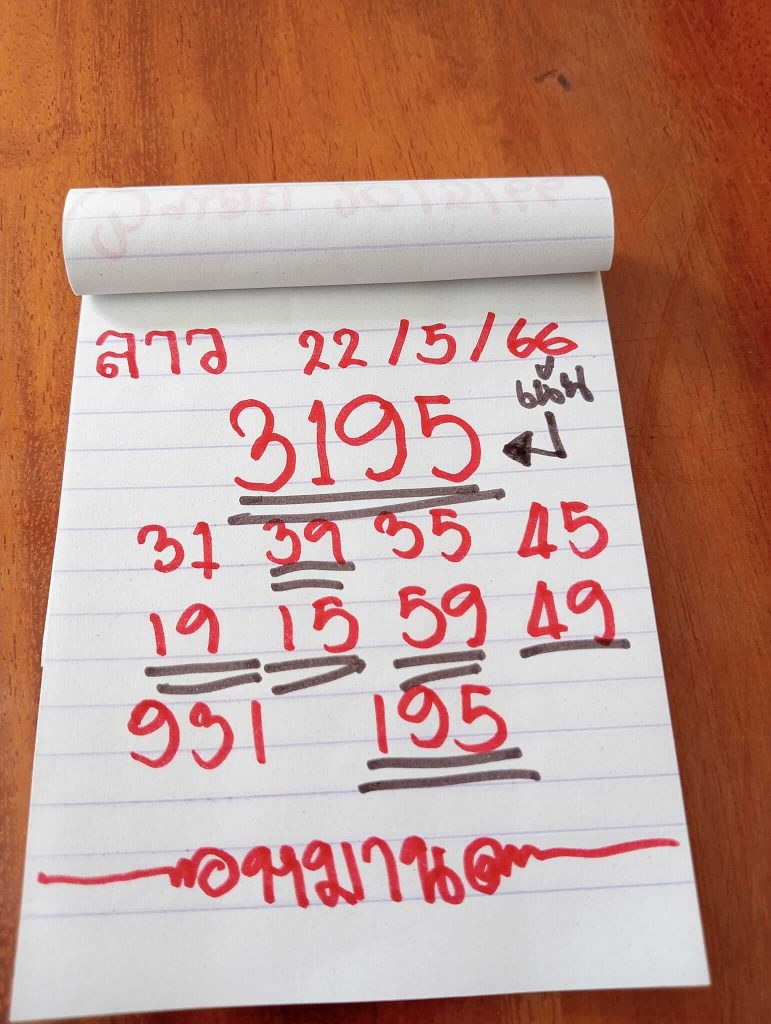 ลาว 22/5/66
เน้น
3195
31 39 35 45
19 15 59 49
931 195